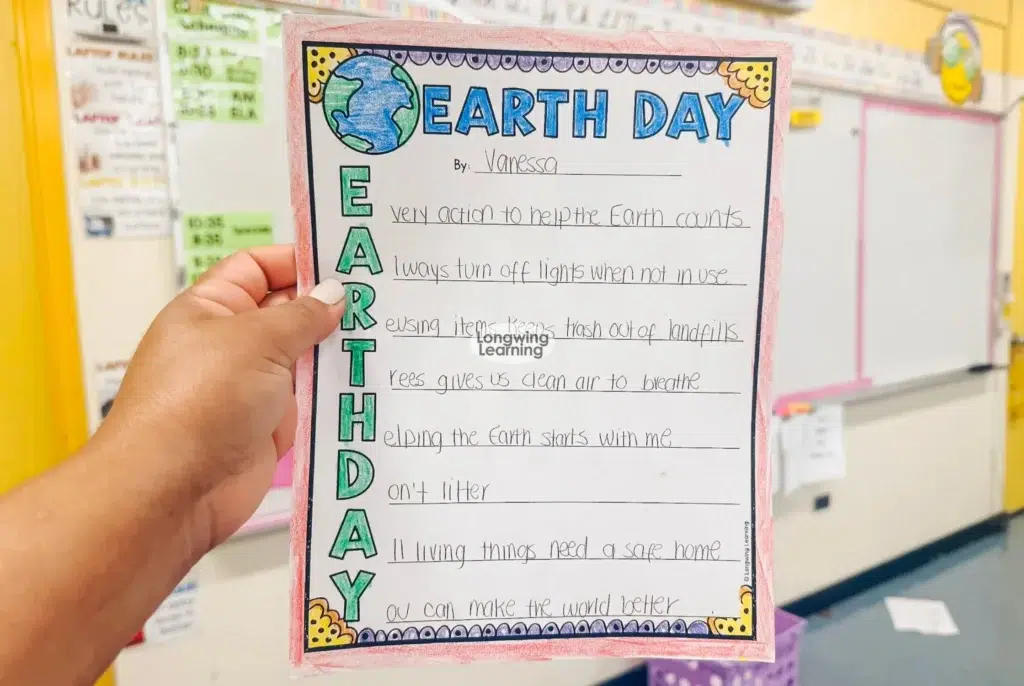 RULES
LAPTOP RULES
EARTH DAY
By: Vanessa
E very action to help the Earth counts
A lways turn off lights when not in use
R eusing items keeps trash out of landfills
T rees gives us clean air to breathe
H elping the Earth starts with me
D on't litter
A ll living things need a safe home
Y ou can make the world better.
Longwing
Learning
© Longwing Learning
10:35
8:35